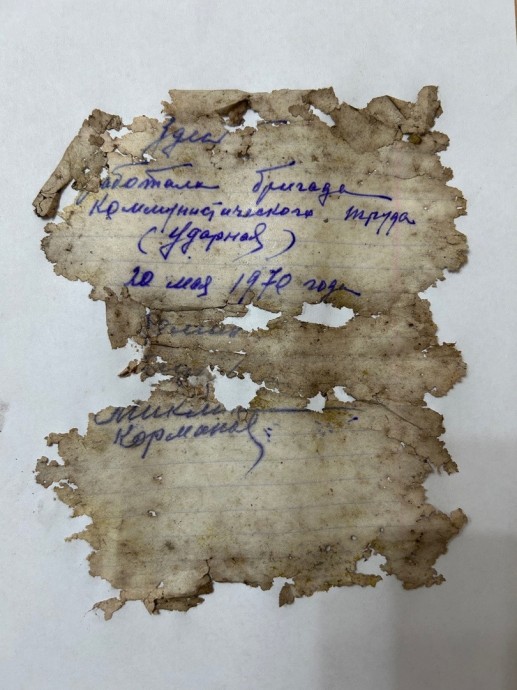 Здесь
работала бригада
Коммунистического труда
(ударная)
20 мая 1970 года
Корманов